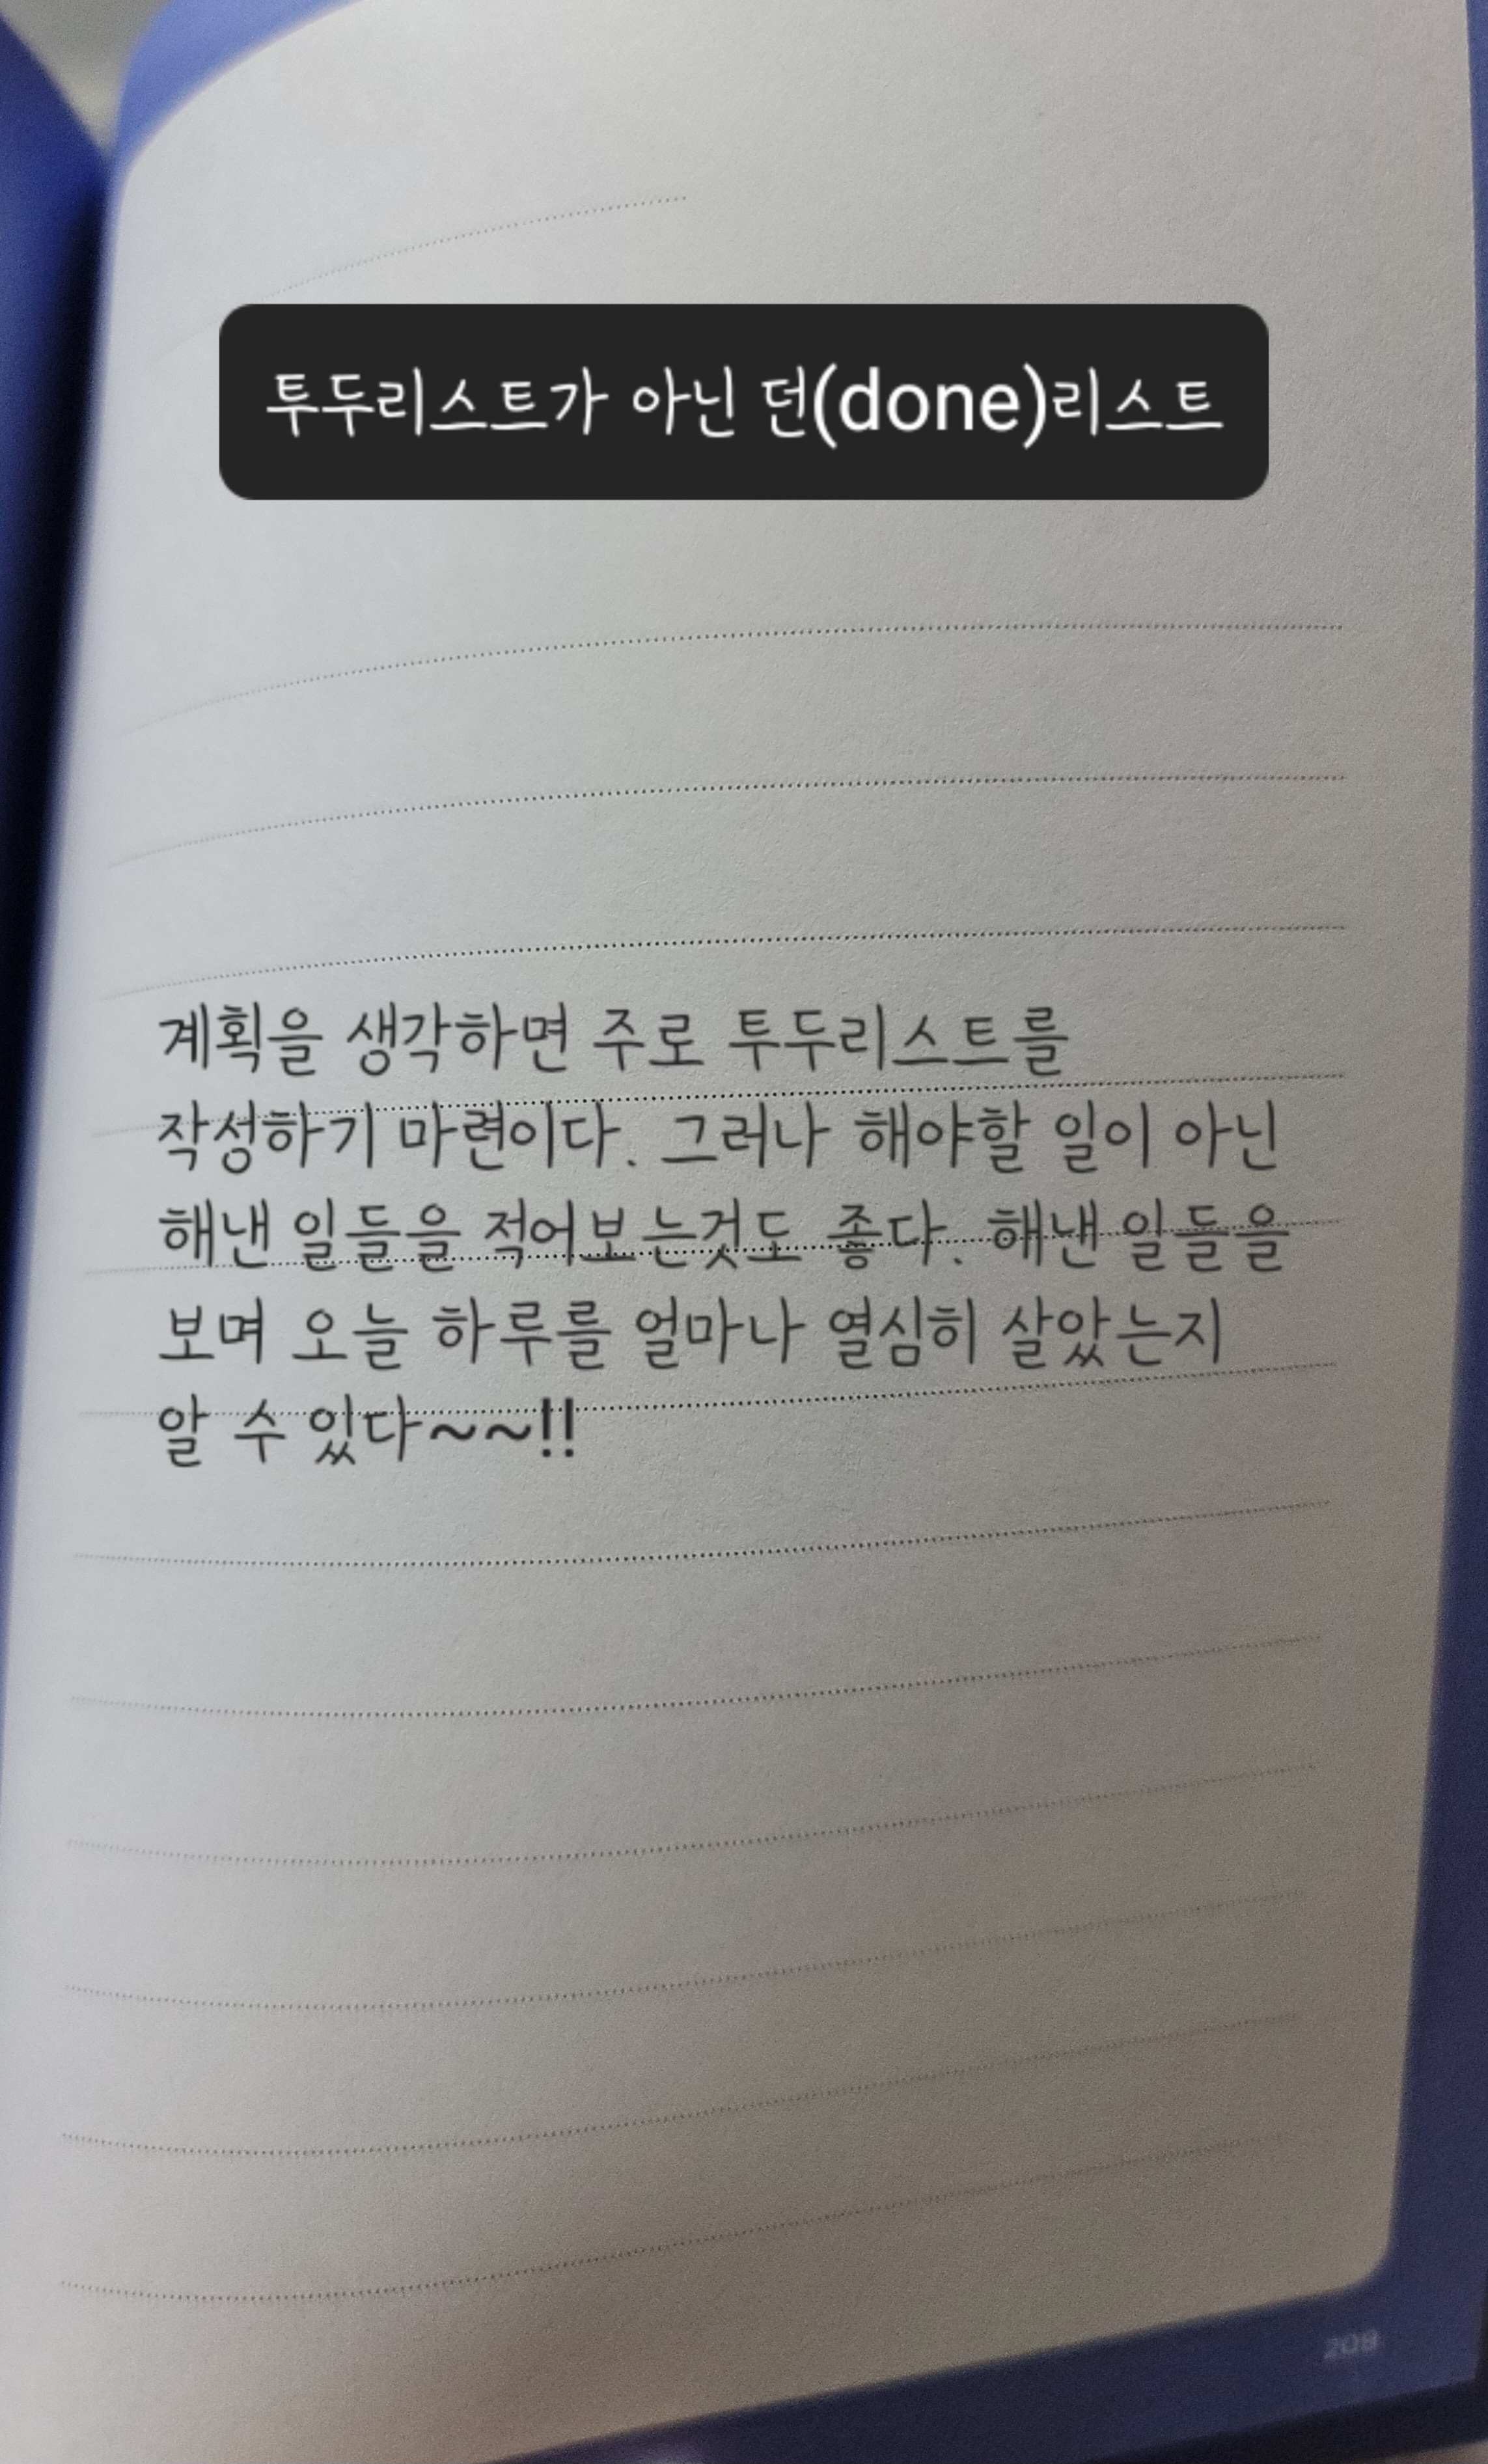 투두리스트가 아닌 던(done)리스트
계획을 생각하면 주로 투두리스트를
작성하기 마련이다. 그러나 해야할 일이 아닌
해낸 일들을 적어보는것도 좋다. 해낸 일들을
보며 오늘 하루를 얼마나 열심히 살았는지
알 수 있다~~!!
209